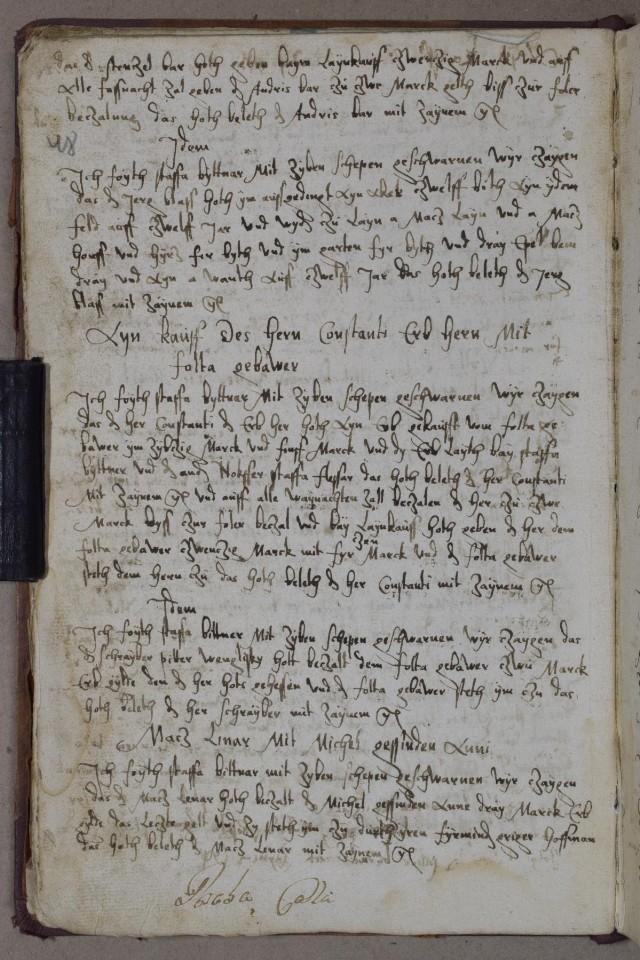 das d stenzel bar hoth geben bayn Laynkauff Zwenczig Marck vnd auff
Alle fassnacht Zal geben d Andris bar Zu Zwe Marck gelth biss Zur foler
beczalung das hoth beleth d Andris bar mit Zaynem gl
48
Idem
Ich foyth staffa byttnar Mit Zyben schepen geschwarnen wyr Zaygen
das d Jerg blass hoth ym aussgedingt Ayn Aker Zwelff byth Ayn ydem
feld auff Zwelff Jar vnd wyd Zu Layn a Macz Layn vnd a Macz
Honff vnd Hyrs fyr byth vnd ym garten fyr byth vnd dray Epel bem
dray vnd Ayn a wanth Auff Zwelff Jar das hoth beleth d Jerg
blass mit Zaynem gl
Ayn kauff Des Hern Constanti Erb Hern Mit
folta gebawer
Ich foyth staffa byttnar Mit Zyben schepen geschwarnen wyr Zaygen
das d her Constanti d Erb her hoth Ayn Erb gekaufft vom folta ge
bawer ym Zybczig Marck vnd funff Marck vnd dy Erb Layth bay staffa
byttner vnd d and staffa flessar das hoth beleth d her Constanti
Mit Zaynem gl vnd auff alle waynachten Zall beczalen d her Zu Zwe
Marck byss Zur foler beczal vnd bay Laynkauff hoth geben d her dem
folta gebawer Zwenczig Marck mit fyr Zen Marck vnd d folta gebawer
steth dem hern Zu das hoth beleth d her Constanti mit Zaynem gl
Idem
Ich foyth staffa bittner Mit Zyben schepen geschwarnen wyr Zaygen das
d schrayber piter hott beczalt dem folta gebawer Zwu Marck
Erb gelts den d her hots gehessen vnd d folta gebawer steth ym Zu das
hoth beleth d her schrayber mit Zaynem gl
Macz Linar Mit Michel gessinden Anni
Ich foyth staffa bittnar mit Zyben schepen geschwarnen wyr Zaygen
das d Macz Lenar hoth beczalt d Michel gessinden Anne dray Marck Erb
gelts das Leczte gelt vnd Zy steth ym Zu durch yren fyrmind Hoffman
das hoth beleth d Macz Lenar mit Zaynem gl